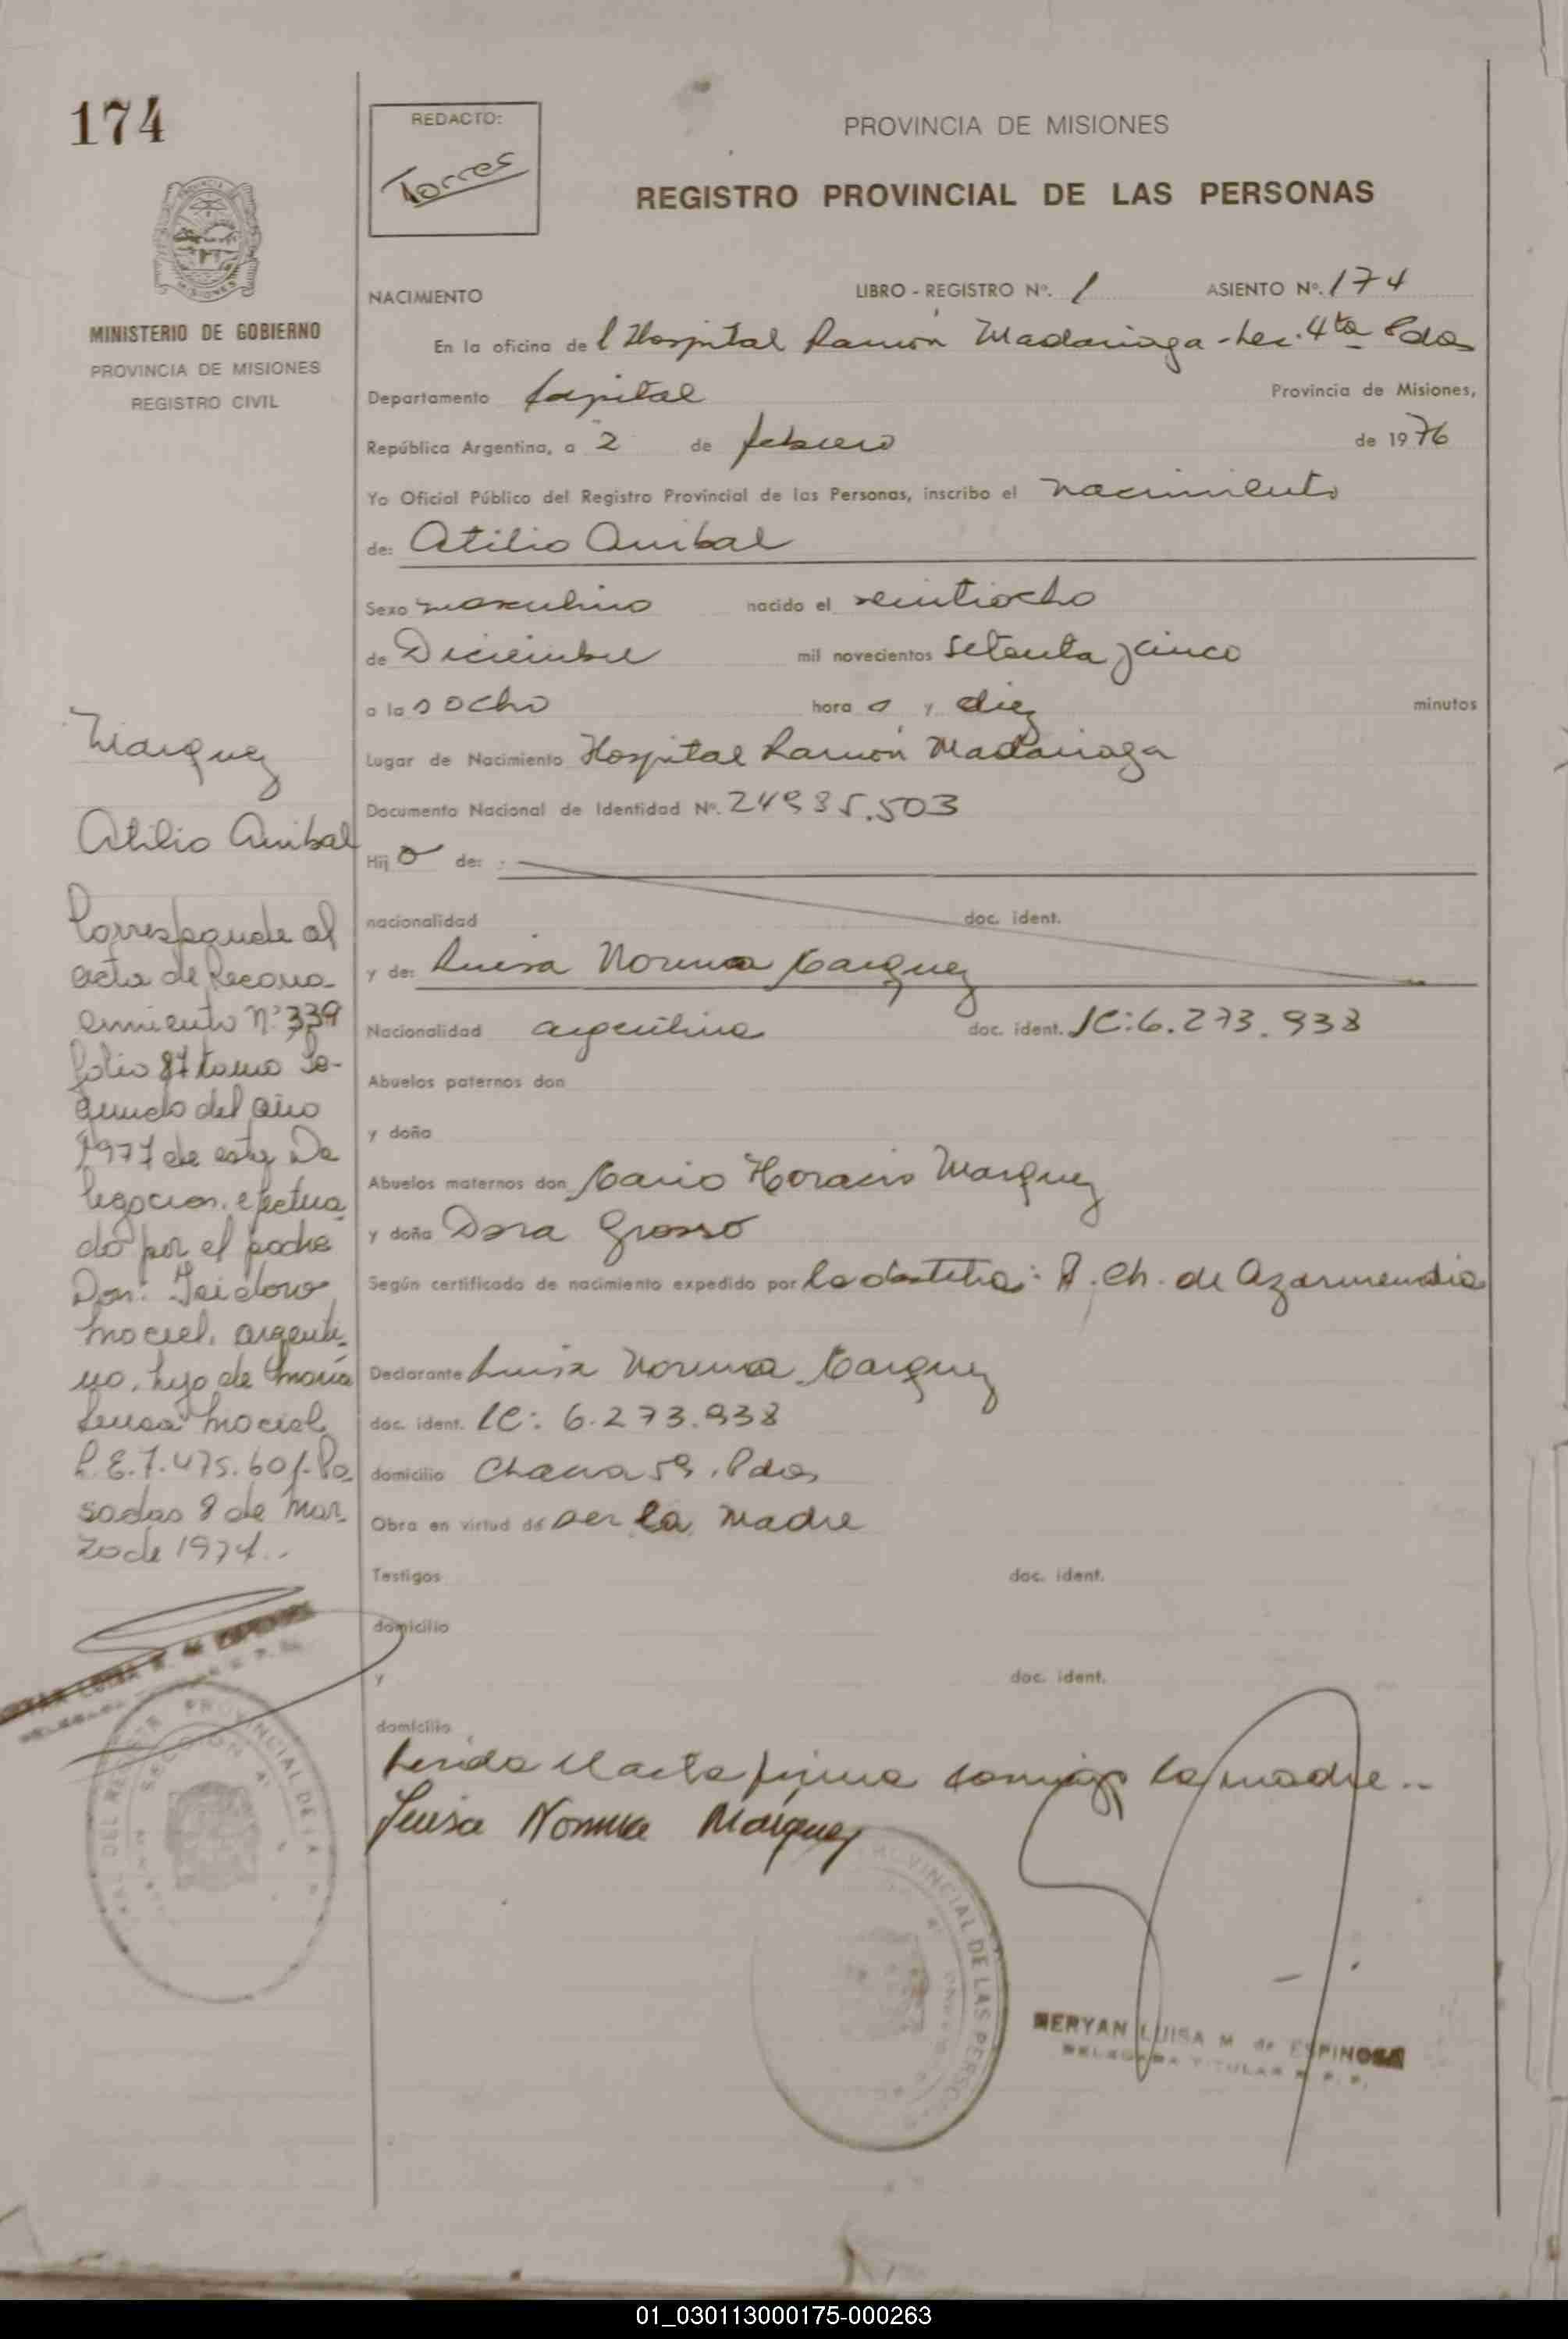 174
REDACTO:
Torres
PROVINCIA DE MISIONES
REGISTRO PROVINCIAL DE LAS PERSONAS
MINISTERIO DE GOBIERNO
PROVINCIA DE MISIONES
REGISTRO CIVIL
NACIMIENTO LIBRO - REGISTRO Nº. 1 ASIENTO Nº. 174
En la oficina de l Hospital Ramón Madariaga - Sec. 4ta Pdas
Departamento Capital Provincia de Misiones,
República Argentina, a 2 de febrero de 1976
Yo Oficial Público del Registro Provincial de las Personas, inscribo el nacimiento
de: Atilio Anibal
Sexo masculino nacido el veintiocho
de Diciembre mil novecientos setenta y cinco
a las ocho hora s y diez minutos
Lugar de Nacimiento Hospital Ramón Madariaga
Documento Nacional de Identidad Nº. 24.985.503
Hijo de:
nacionalidad doc. ident.
y de: Luisa Norma Marquez
Nacionalidad argentina doc. ident. LC: 6.273.938
Abuelos paternos don
y doña
Abuelos maternos don Mario Horacio Marquez
y doña Dora Grosso
Según certificado de nacimiento expedido por la obstetra: A. Ch. de Azarmendia
Declarante Luisa Norma Marquez
doc. ident. LC: 6.273.938
domicilio Chacra 59. Pdas
Obra en virtud de ser la madre
Testigos doc. ident.
domicilio
y doc. ident.
domicilio
Leida el acta firma conmigo la madre..
Luisa Norma Márquez
MERYAN LUISA M. de ESPINOSA
DELEGADA TITULAR R. P. P.
Marquez
Atilio Anibal
Corresponde al
acta de Recono-
cimiento Nº 339
folio 87 tomo Se-
gundo del año
1977 de esta De
legacion. efectua
do por el padre
Don: Isidoro
Maciel, argenti-
no, hijo de María
Luisa Maciel
L.E. 7.475.601. Po
sadas 8 de Mar-
zo de 1977..
PROVINCIAL DE LAS PERSO
01_030113000175-000263